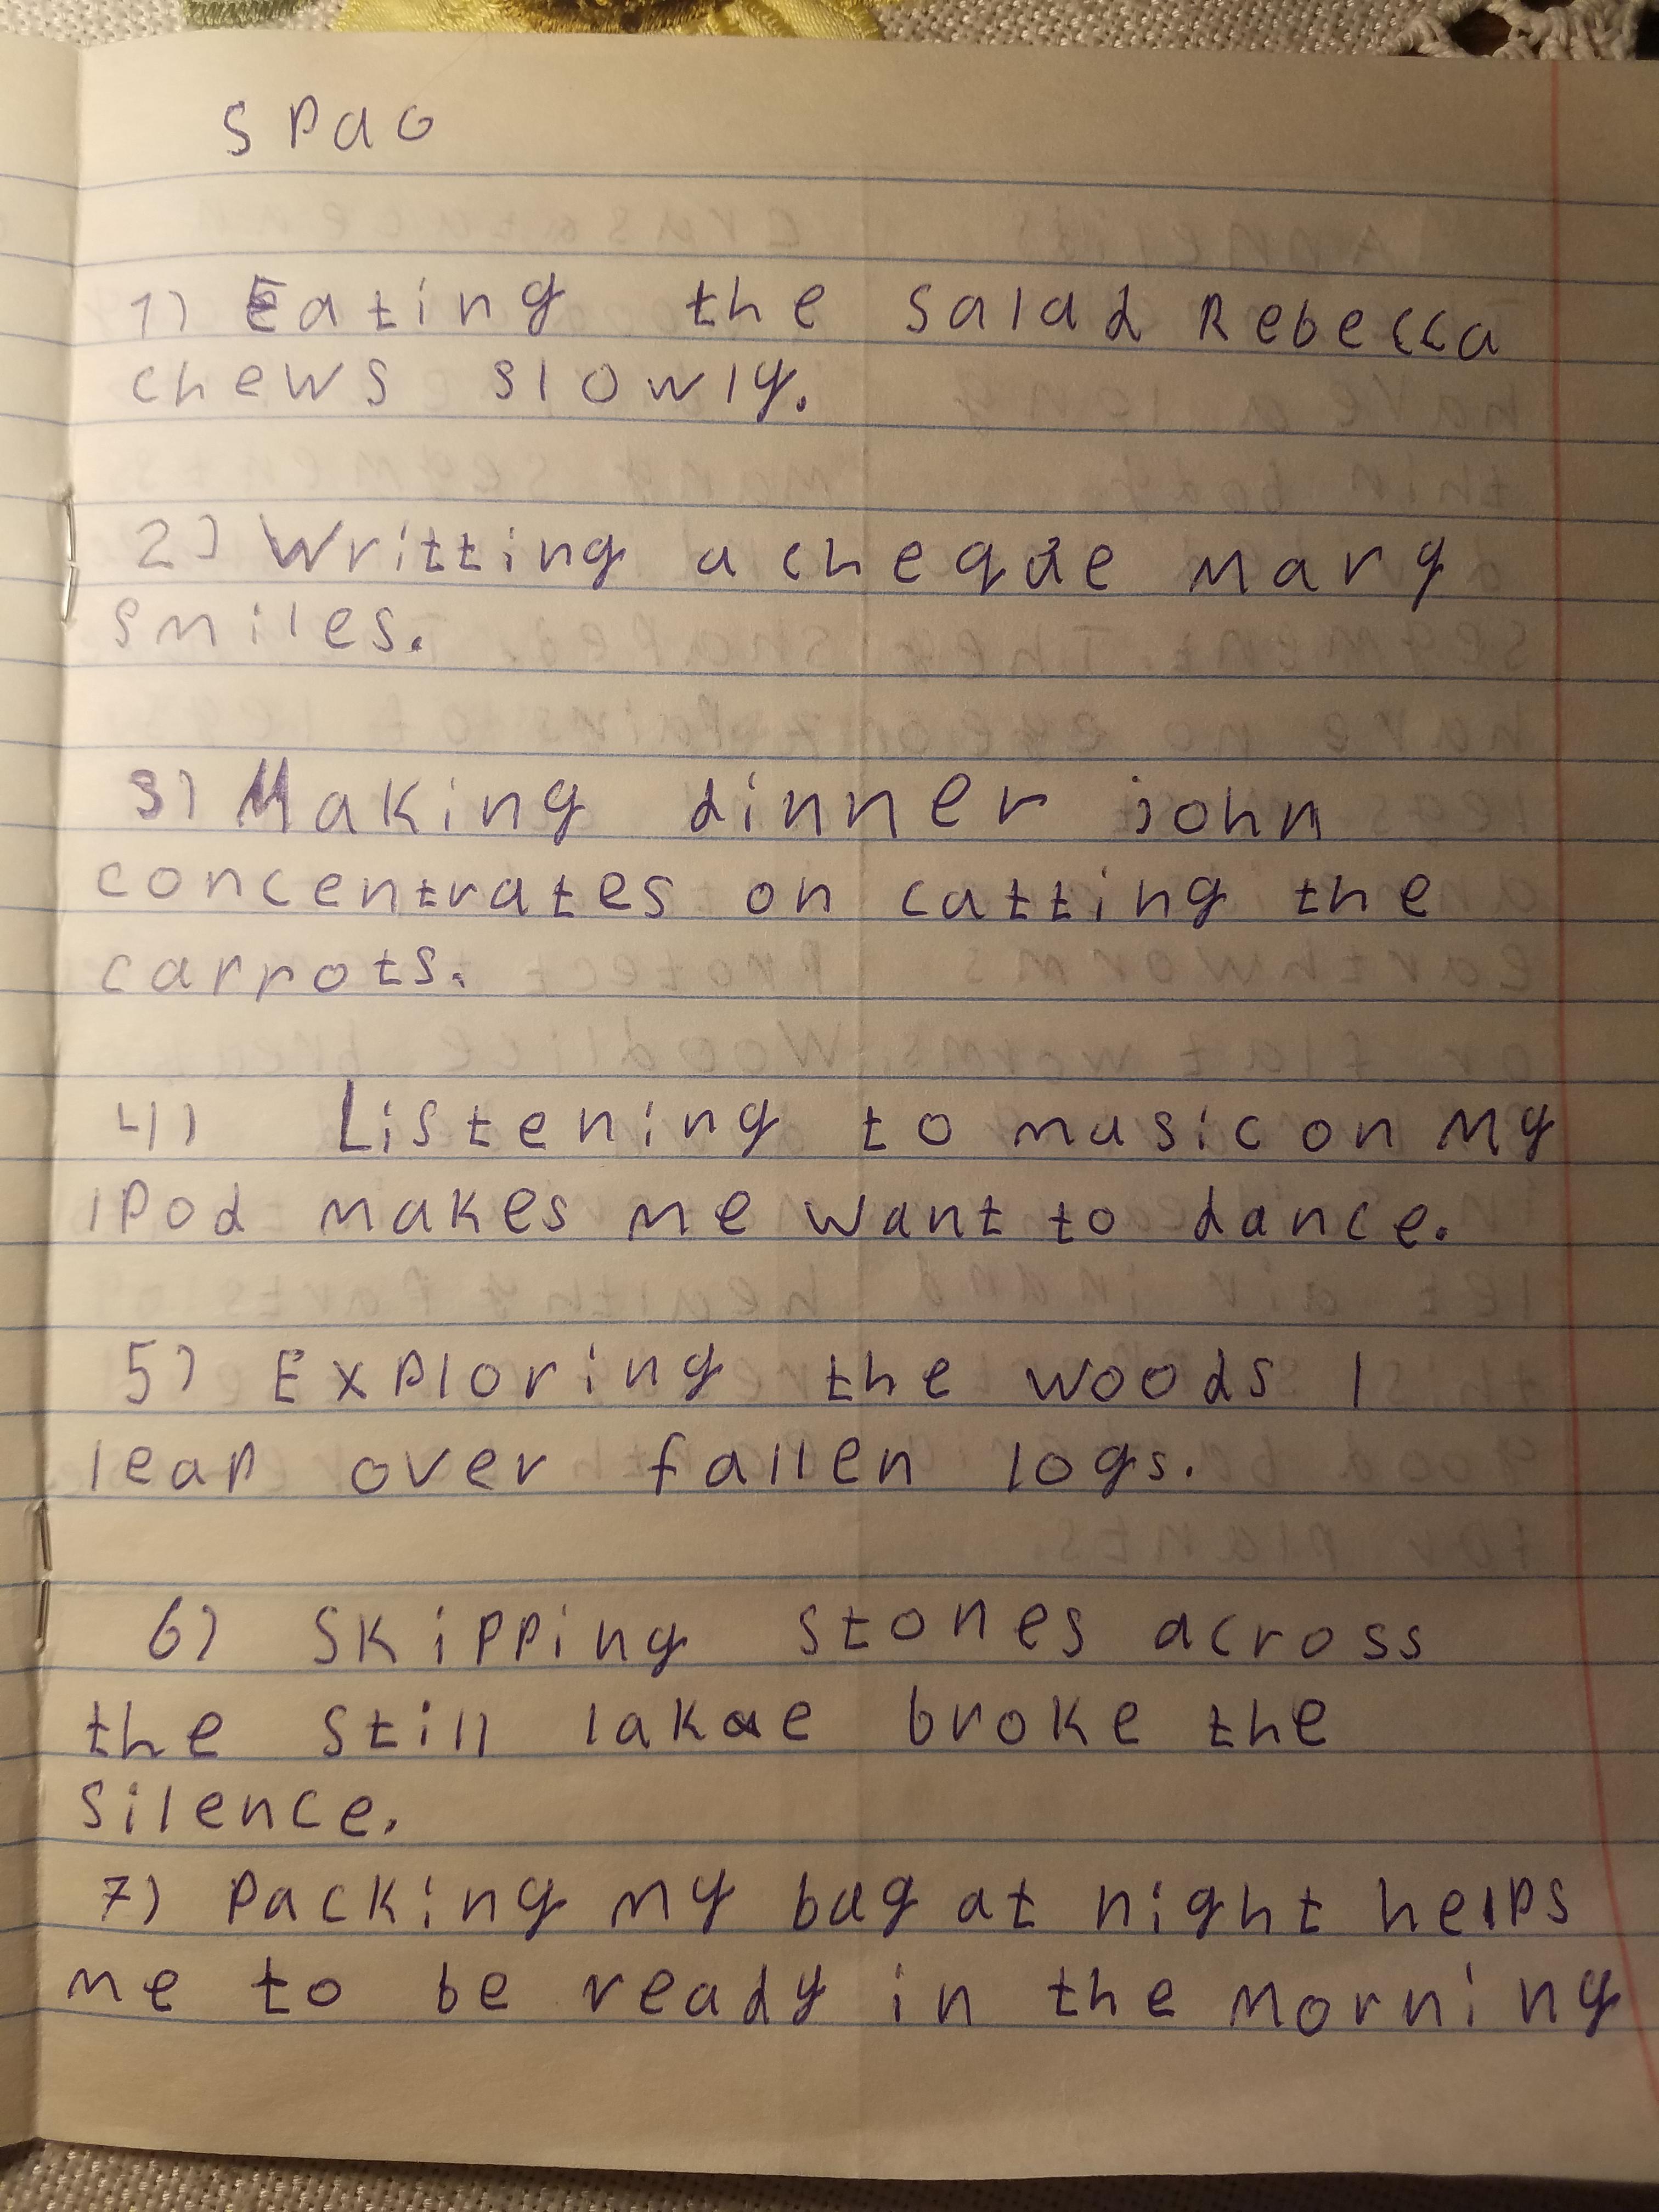 SPaG
1) Eating the salad Rebecca
chews slowly.
2) Writting a cheque Mary
smiles.
3) Making dinner john
concentrates on catting the
carrots.
4) Listening to music on My
iPod makes me want to dance.
5) Exploring the woods I
leap over fallen logs.
6) Skipping stones across
the still lakae broke the
silence.
7) Packing my bag at night helps
me to be ready in the morning